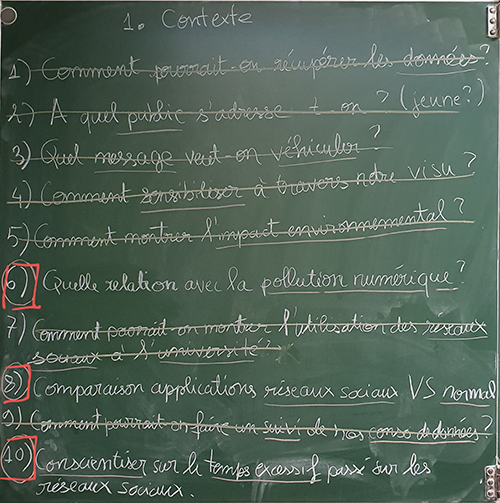 1. Contexte
1) Comment pourrait-on récupérer les données?
2) A quel public s'adresse-t-on ? (jeune?)
3) Quel message veut-on véhiculer?
4) Comment sensibiliser à travers notre visu?
5) Comment montrer l'impact environnemental?
6) Quelle relation avec la pollution numérique?
7) Comment pourrait-on montrer l'utilisation des reseaux
sociaux à l'université
8) Comparaison applications réseaux sociaux VS normal
9) Comment pourrait-on faire un suivi de nos conso de données?
10) Conscientiser sur le temps excessif passé sur les
réseaux sociaux.